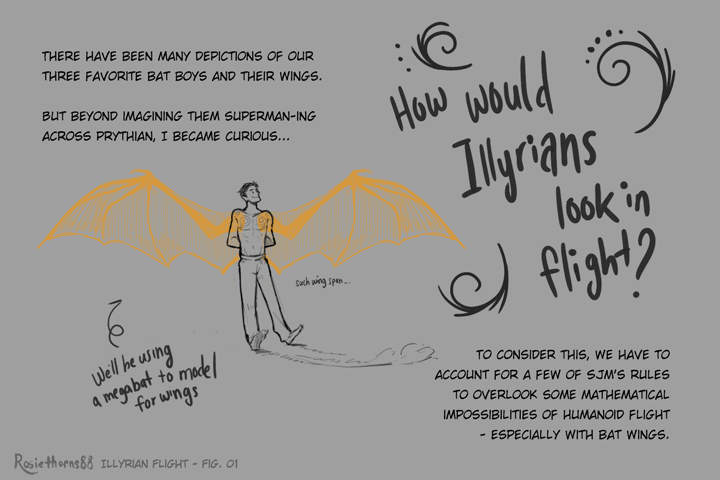 THERE HAVE BEEN MANY DEPICTIONS OF OUR
THREE FAVORITE BAT BOYS AND THEIR WINGS.
BUT BEYOND IMAGINING THEM SUPERMAN-ING
ACROSS PRYTHIAN, I BECAME CURIOUS...
How would
Illyrians
look in
flight?
such wing span...
We'll be using
a megabat to model
for wings
TO CONSIDER THIS, WE HAVE TO
ACCOUNT FOR A FEW OF SJM'S RULES
TO OVERLOOK SOME MATHEMATICAL
IMPOSSIBILITIES OF HUMANOID FLIGHT
- ESPECIALLY WITH BAT WINGS.
Rosiethorns88 ILLYRIAN FLIGHT - FIG. 01